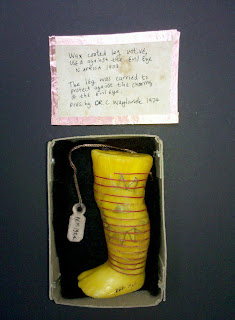 Wax coated leg votive,
used against the Evil Eye
N Africa
The leg was carried to
protect against the
of the Evil Eye.
Pres. by DR C